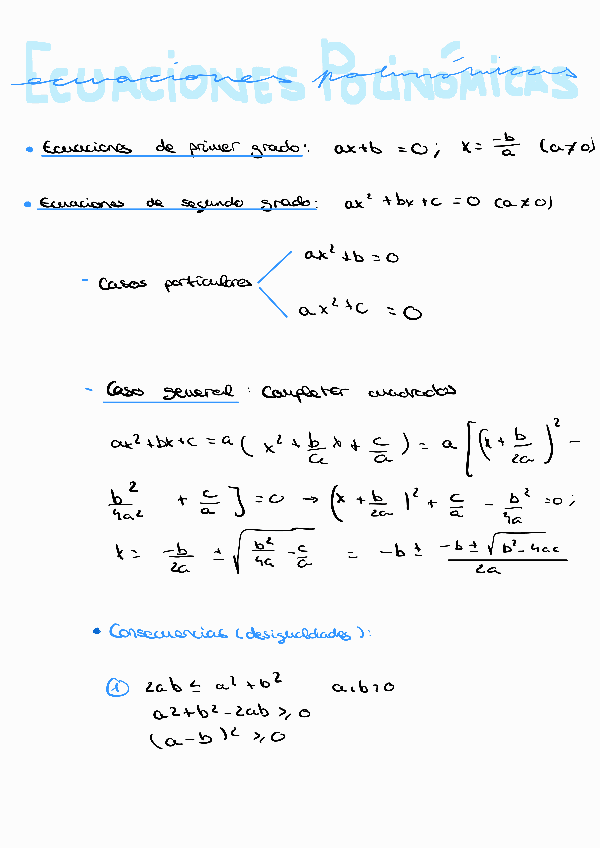 ECUACIONES POLINÓMICAS
ecuaciones polinómicas
• Ecuaciones de primer grado: ax+b = 0; x = -b/a (a≠0)
• Ecuaciones de segundo grado: ax² + bx + c = 0 (a≠0)
- Casos particulares
ax² + b = 0
ax² + c = 0
- Caso general: Completar cuadrados
ax² + bx + c = a ( x² + b/a x + c/a ) = a [ (x + b/2a )² -
b²/4a² + c/a ] = 0 → (x + b/2a )² + c/a - b²/4a = 0;
x = -b/2a ± √(b²/4a - c/a) = -b ± -b ± √(b² - 4ac)/2a
• Consecuencias (desigualdades):
① 2ab ≤ a² + b² a,b > 0
a² + b² - 2ab ≥ 0
(a - b)² ≥ 0